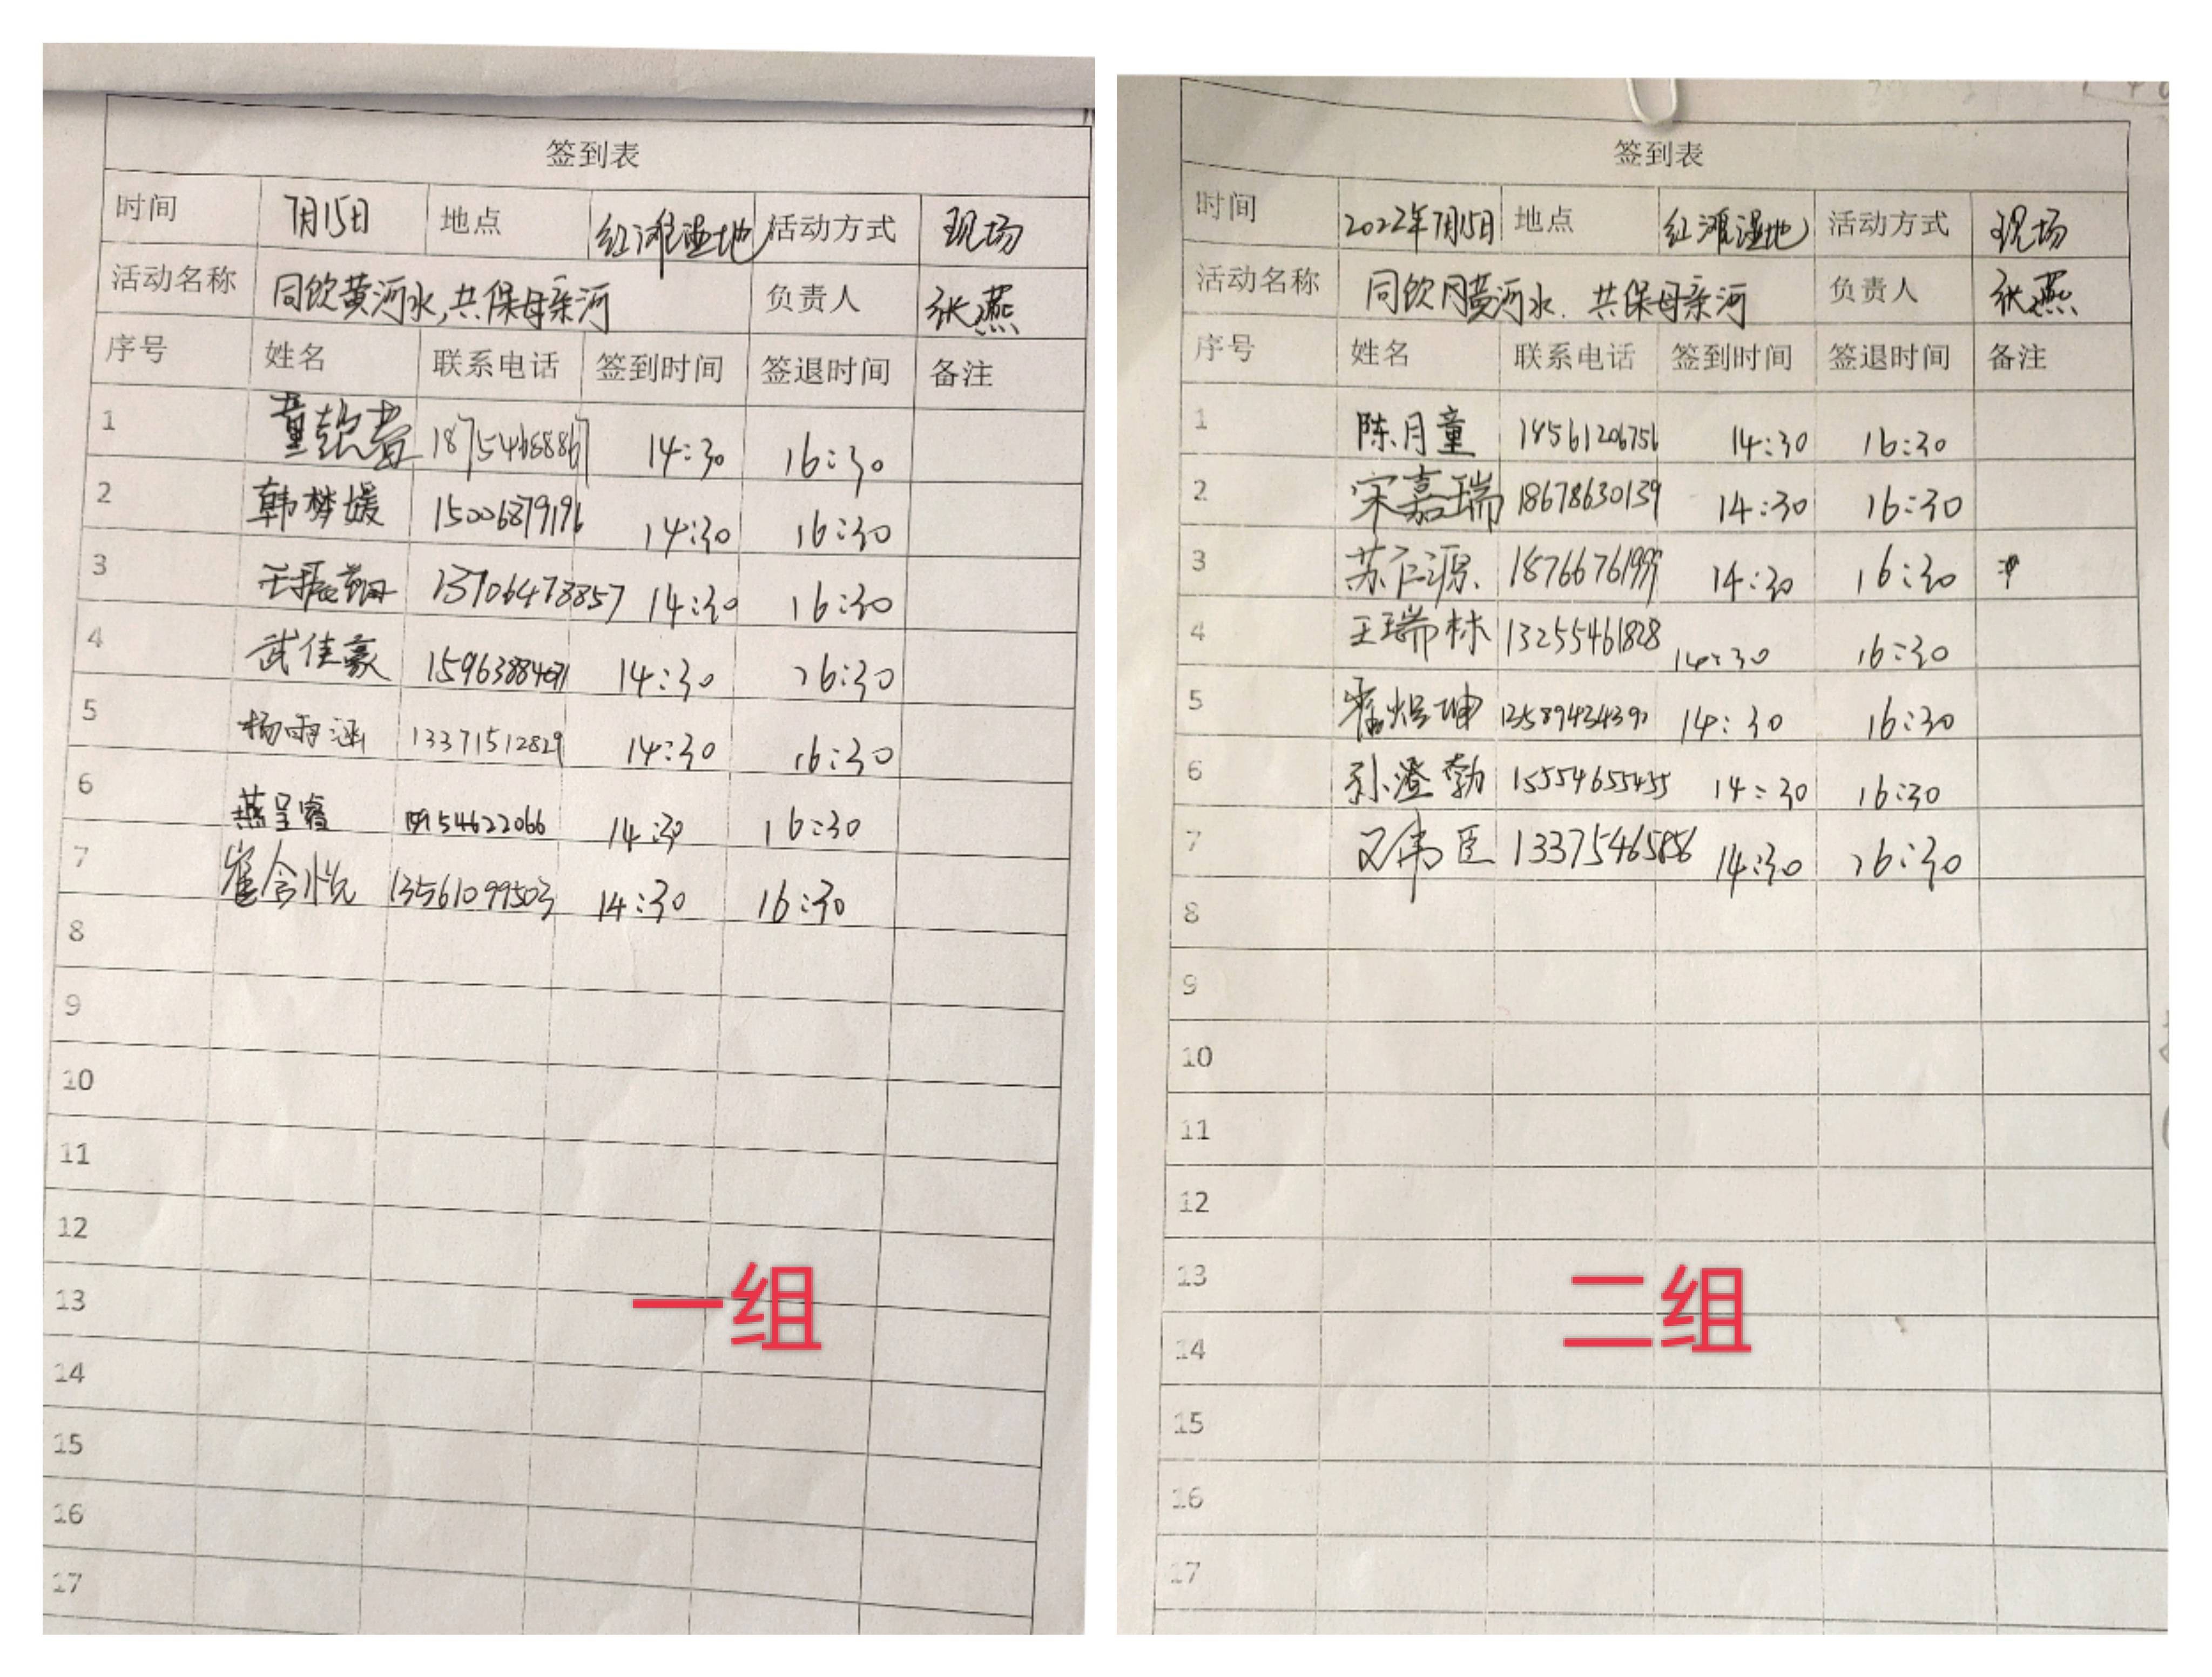 签到表
时间 7月15日 地点 红滩湿地 活动方式 现场
活动名称 同饮黄河水,共保母亲河 负责人 张燕
序号 姓名 联系电话 签到时间 签退时间 备注
1 18754688867 14:30 16:30
2 韩梦媛 15006879196 14:30 16:30
3 13706478857 14:30 16:30
4 武佳豪 14:30 16:30
5 杨雨涵 13371512829 14:30 16:30
6 燕呈睿 14:30 16:30
7 崔含悦 13561099503 14:30 16:30
8
9
10
11
12
13
14
15
16
17
一组
签到表
时间 2022年7月15日 地点 红滩湿地 活动方式 现场
活动名称 同饮黄河水.共保母亲河 负责人 张燕
序号 姓名 联系电话 签到时间 签退时间 备注
1 陈月童 14:30 16:30
2 宋嘉瑞 18678630139 14:30 16:30
3 苏仁源 18766761999 14:30 16:30
4 王瑞林 13255461828 14:30 16:30
5 14:30 16:30
6 孙澄勃 15554655455 14:30 16:30
7 14:30 16:30
8
9
10
11
12
13
14
15
16
17
二组